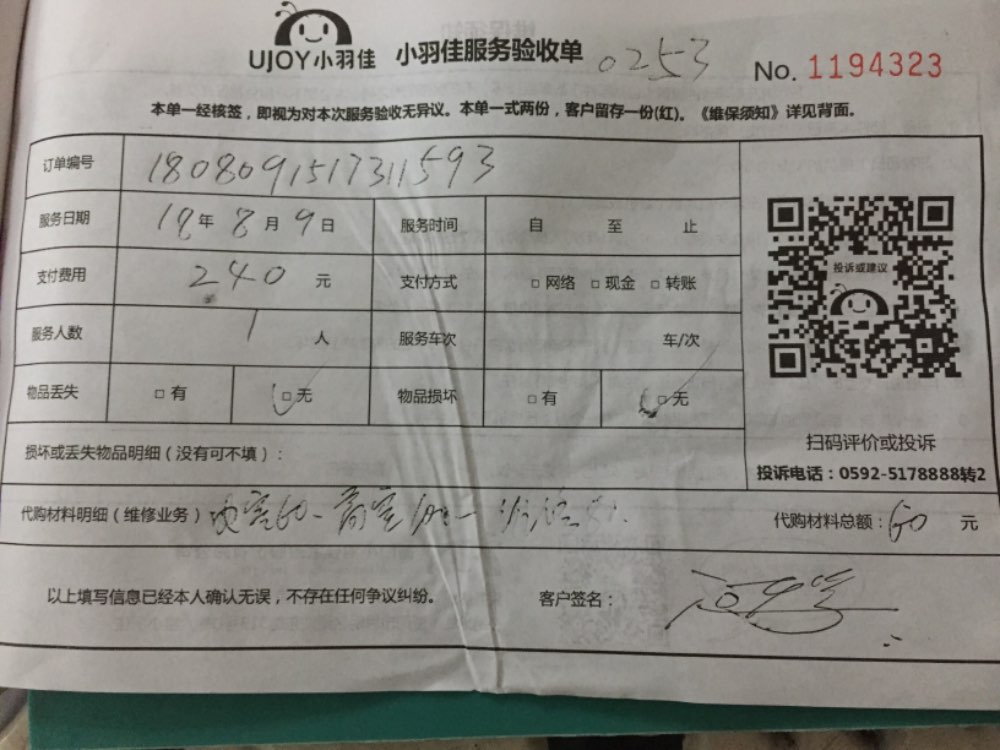 UJOY小羽佳 小羽佳服务验收单 0253 No. 1194323
本单一经核签，即视为对本次服务验收无异议。本单一式两份，客户留存一份(红)。《维保须知》详见背面。
订单编号 1808091517311593
服务日期 18年8月9日 服务时间 自 至 止
支付费用 240 元 支付方式 □网络 □现金 □转账
服务人数 1 人 服务车次 车/次
物品丢失 □有 □无 物品损坏 □有 □无
投诉或建议
扫码评价或投诉
投诉电话：0592-5178888转2
损坏或丢失物品明细（没有可不填）：
代购材料明细（维修业务） 代购材料总额：60 元
以上填写信息已经本人确认无误，不存在任何争议纠纷。 客户签名：